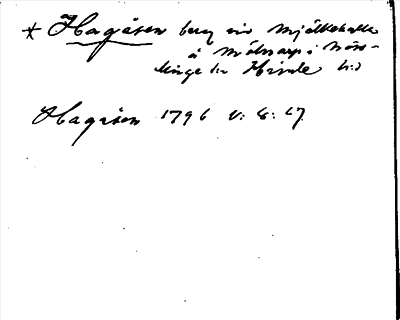 * Hagåsen berg vid Mjölkekulle
å Mölnarp i Nöss-
linge sn Himle hd
Hagåsen 1796 V: 6: 67